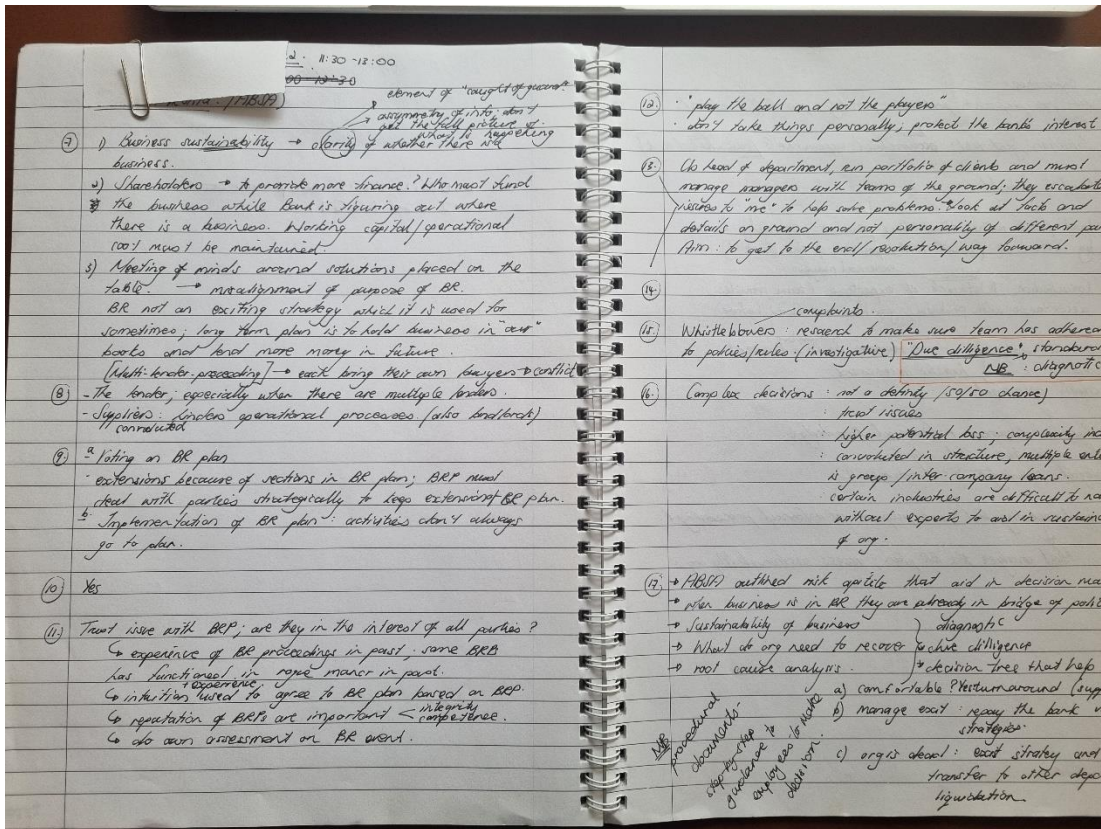 2. 11:30 - 13:00
00 - 12:30
(ABSA)
element of "caught off guard".
assymetry of info; don't
get the full picture of
what is happening
7. 1) Business sustainability → clarity of whether there is a
business.
2) Shareholders → to provide more finance? Who must fund
the business while Bank is figuring out where
there is a business. Working capital/operational
cost must be maintained.
3) Meeting of minds around solutions placed on the
table. → misalignment of purpose of BR.
BR not an exiting strategy which it is used for
sometimes; long term plan is to hold business in "our"
books and lend more money in future.
[Multi-lender proceeding] → each bring their own lawyers → conflict
8. - The lender, especially when there are multiple lenders.
- Suppliers: hinders operational processes (also landlords)
convoluted
9. a. Voting on BR plan
- extensions because of sections in BR plan; BRP must
deal with parties strategically to keep extension of BR plan.
b. Implementation of BR plan: activities don't always
go to plan.
10. Yes
11. Trust issue with BRP; are they in the interest of all parties?
↳ experience of BR proceedings in past, same BRP
has functioned in rogue maner in past.
↳ intuition + experience used to agree to BR plan based on BRP.
↳ reputation of BRPs are important < integrity
competence.
↳ do own assessment on BR event.
12. · "play the ball and not the players"
· don't take things personally; protect the bank's interest
13. As head of department, run portfolio of clients and must
manage managers with teams of the ground; they escalate
issues to "me" to help solve problems. Look at facts and
details on ground and not personality of different
Aim: to get to the end/resolution/way forward.
14.
complaints.
15. Whistleblowers: research to make sure team has adhered
to policies/rules. (investigative) "Due dilligence" : standard
NB : diagnostic
16. Complex decisions : not a definity (50/50 chance)
: trust issues
: higher potential loss; complexity
: convoluted in structure, multiple
is groups / inter company loans.
: certain industries are difficult to
without experts to aid in
of org.
17. → ABSA outlined risk apitite that aid in decision
→ when business is in BR they are already in bridge of
→ Sustainability of business } diagnostic
→ What do org need to recover → due dilligence
→ root cause analysis. → decision tree that help
a) comfortable? Yes turnaround
b) manage exit: repay the bank
strategies.
c) org is dead: exit stratey and
transfer to other
liquidation
NB procedural
documents -
step-by-step
guidance to
employees to make
decision.